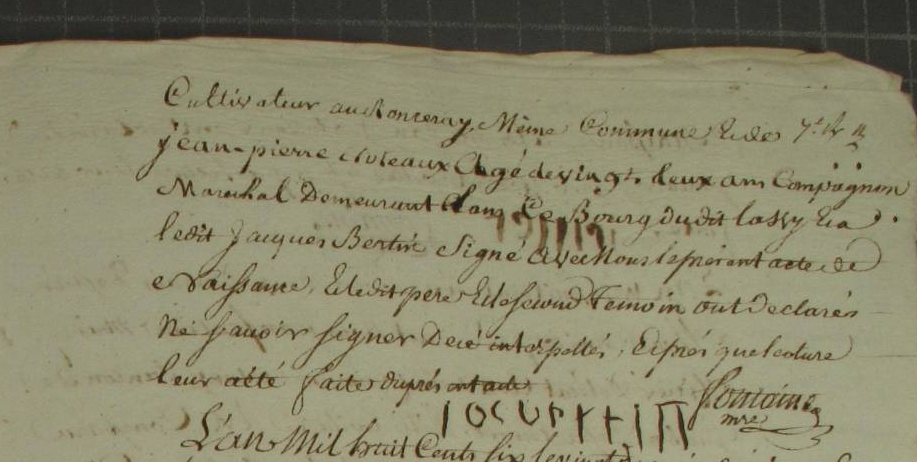 Cultivateur au Ronceray, Même Commune Et de
jean-pierre Agé de vingt deux ans Compagnon
Maréchal Demeurant dans Ce Bourg dudit lassy Et a
ledit Jacques Bertin Signé avec Nous le présent acte de
Naissance, Et ledit pere Et le second Temoin ont Declarés
Ne sçavoir signer De ce interpellés, Et près que lecture
leur a été faite du présent acte
fontaine
mre
L'an Mil huit Cents six le vingt